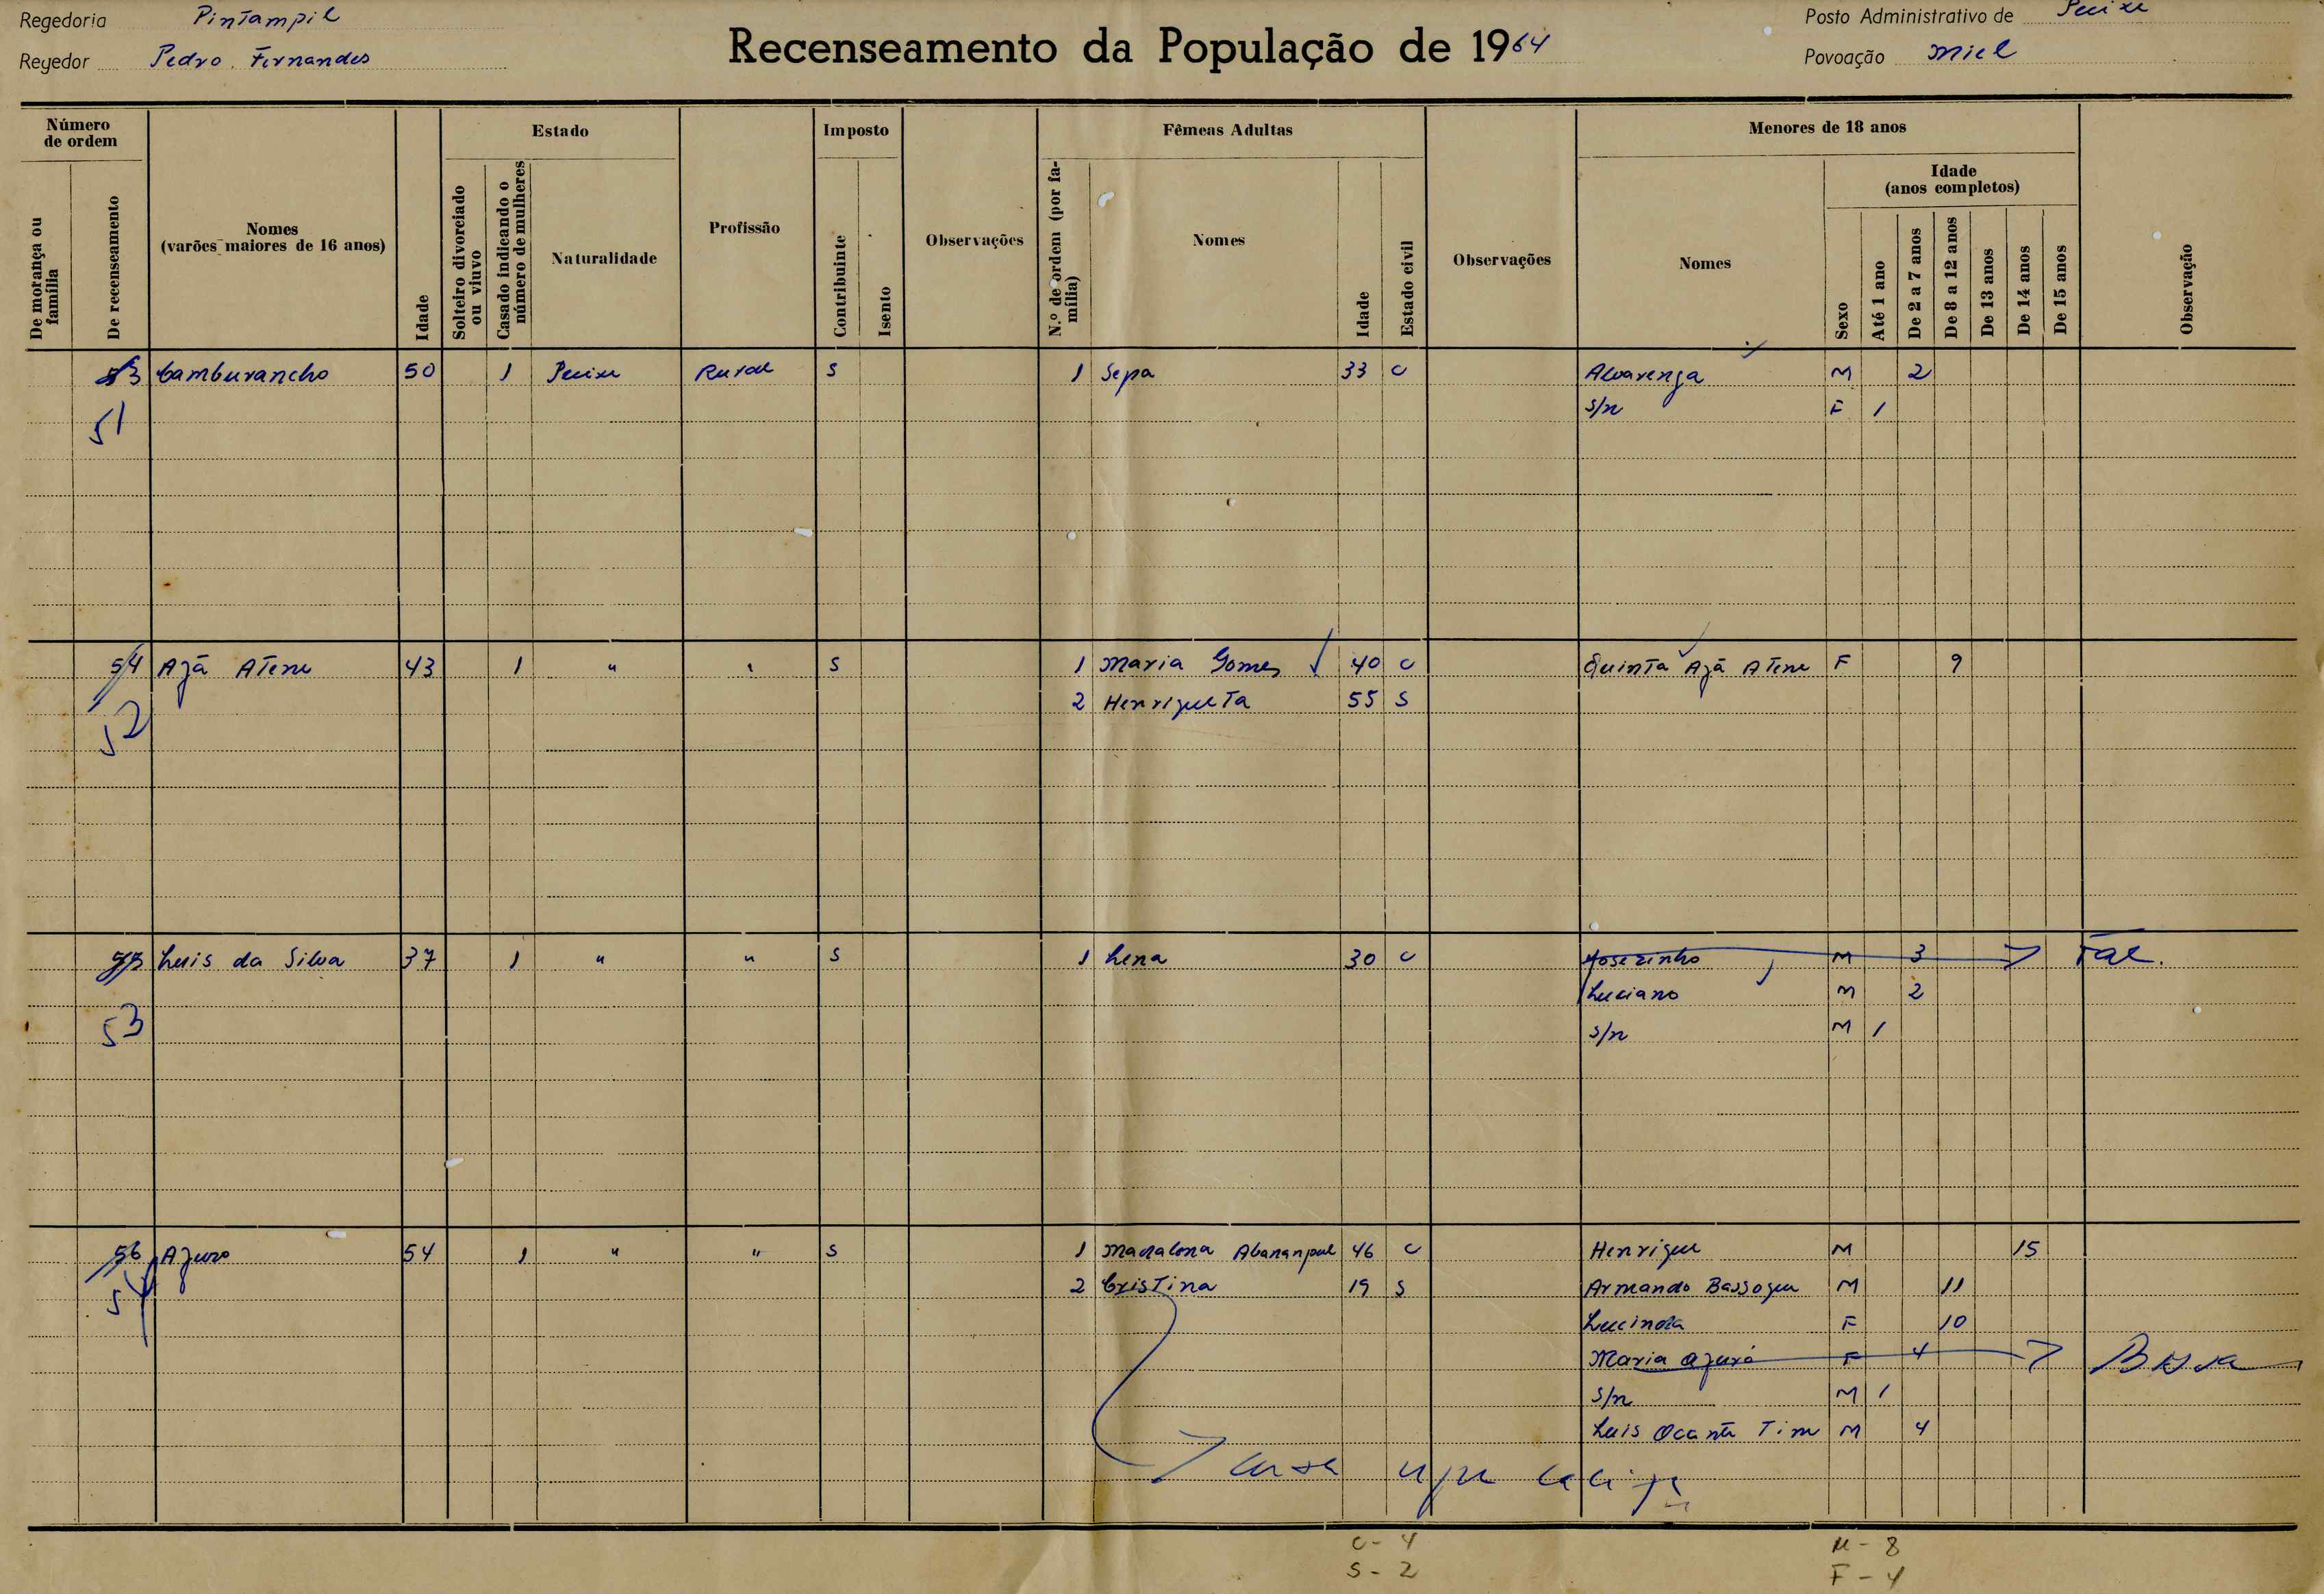 Regedoria Pintampil
Regedor Pedro Fernandes
Recenseamento da População de 1964
Posto Administrativo de Peixe
Povoação Miel
Número de ordem
De morança ou família
De recenseamento
Nomes
(varões maiores de 16 anos)
Idade
Estado
Solteiro divorciado ou viuvo
Casado indicando o número de mulheres
Naturalidade
Profissão
Imposto
Contribuinte
Isento
Observações
Fêmeas Adultas
N.º de ordem (por família)
Nomes
Idade
Estado civil
Observações
Menores de 18 anos
Nomes
Sexo
Idade
(anos completos)
Até 1 ano
De 2 a 7 anos
De 8 a 12 anos
De 13 anos
De 14 anos
De 15 anos
Observação
53 Camburancho 50 1 Peixe Rural S 1 Sepa 33 C Alvarenga M 2
S/n F 1
51
54 Ajã Atene 43 1 " " S 1 Maria Gomes 40 C Quinta Ajã Atene F 9
2 Henriqueta 55 S
52
55 Luis da Silva 37 1 " " S 1 Lena 30 C Joserinho M 3 Fal.
Luciano M 2
53 S/n M 1
56 Ajuro 54 1 " " S 1 Madalena 46 C Henrique M 15
54 2 Cristina 19 S Armando Bassoque M 11
Lucinda F 10
Maria Ajuró F 4
S/n M 1
Luis Ocante Tim M 4
C - 4
S - 2
M - 8
F - 4